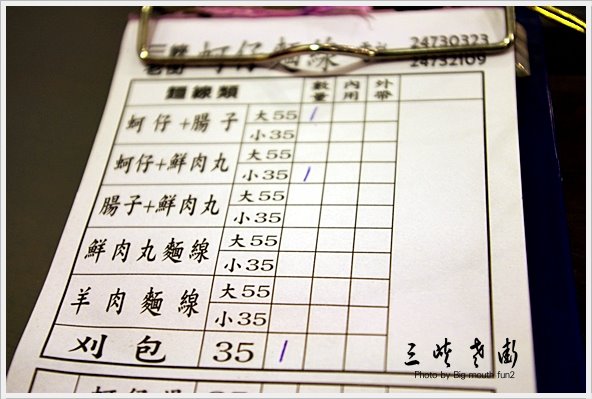 三峽 老街 蚵仔麵線 24730323
24732109
麵線類 數量 內用 外帶
蚵仔+腸子 大55 /
小35
蚵仔+鮮肉丸 大55
小35 /
腸子+鮮肉丸 大55
小35
鮮肉丸麵線 大55
小35
羊肉麵線 大55
小35
刈包 35 /
三峽老街
Photo by Big mouth fun2